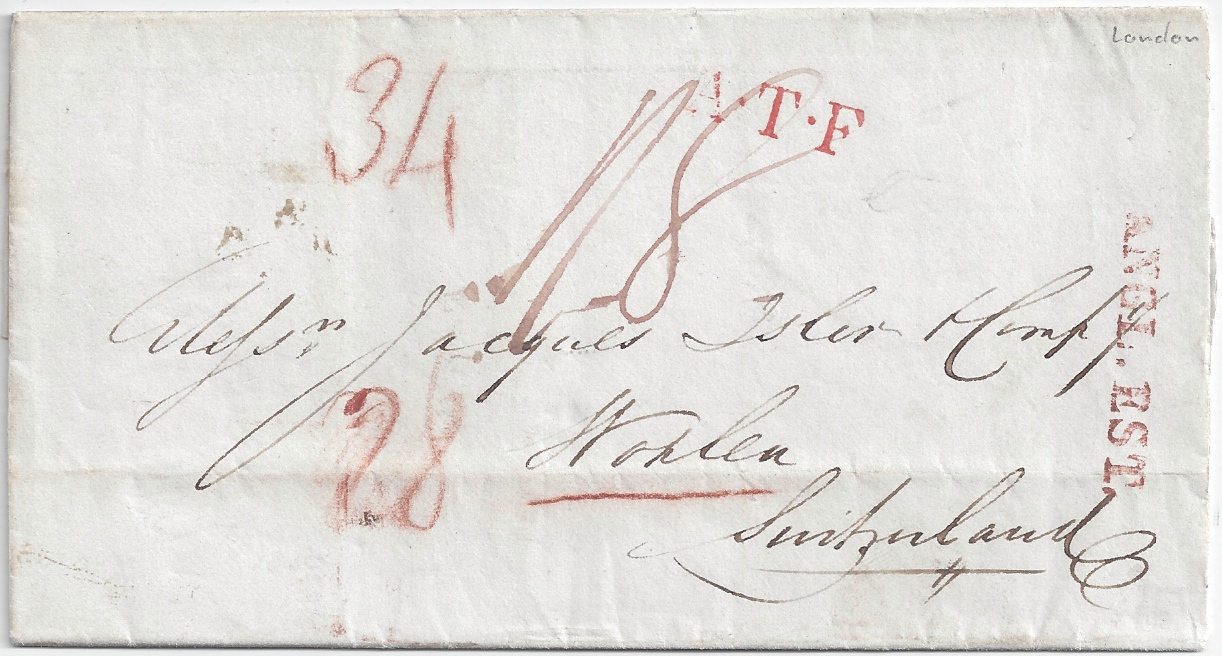 London
34
A·T·F
1/8
Messrs Jacques Isler & Compy
28
Wohlen
Switzerland
ANGL. EST.